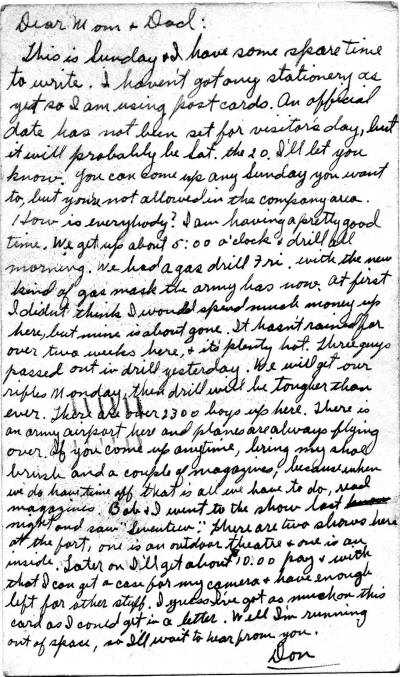 Dear Mom & Dad:
This is Sunday & I have some spare time
to write. I haven't got any stationery as
yet so I am using post cards. An official
date has not been set for visitor's day, but
it will probably be Sat. the 20. I'll let you
know. You can come up any Sunday you want
to, but you're not allowed in the company area.
How is everybody? I am having a pretty good
time. We get up about 5:00 o'clock & drill all
morning. We had a gas drill Fri. with the new
kind of gas mask the army has now. At first
I didn't think I would spend much money up
here, but mine is about gone. It hasn't rained for
over two weeks here, & it's plenty hot. Three guys
passed out in drill yesterday. We will get our
rifles Monday, then drill will be tougher than
ever. There are over 2300 boys up here. There is
an army airport here and planes are always flying
over. If you come up anytime, bring my shoe
brush and a couple of magazines, because when
we do have time off that is all we have to do, read
magazines. Bob & I went to the show last
night and saw "Seventeen". There are two shows here
at the fort, one is an outdoor theatre & one is an
inside. Later on I'll get about $10.00 pay & with
that I can get a case for my camera & have enough
left for other stuff. I guess I've got as much on this
card as I could get in a letter. Well I'm running
out of space, so I'll wait to hear from you.
Don